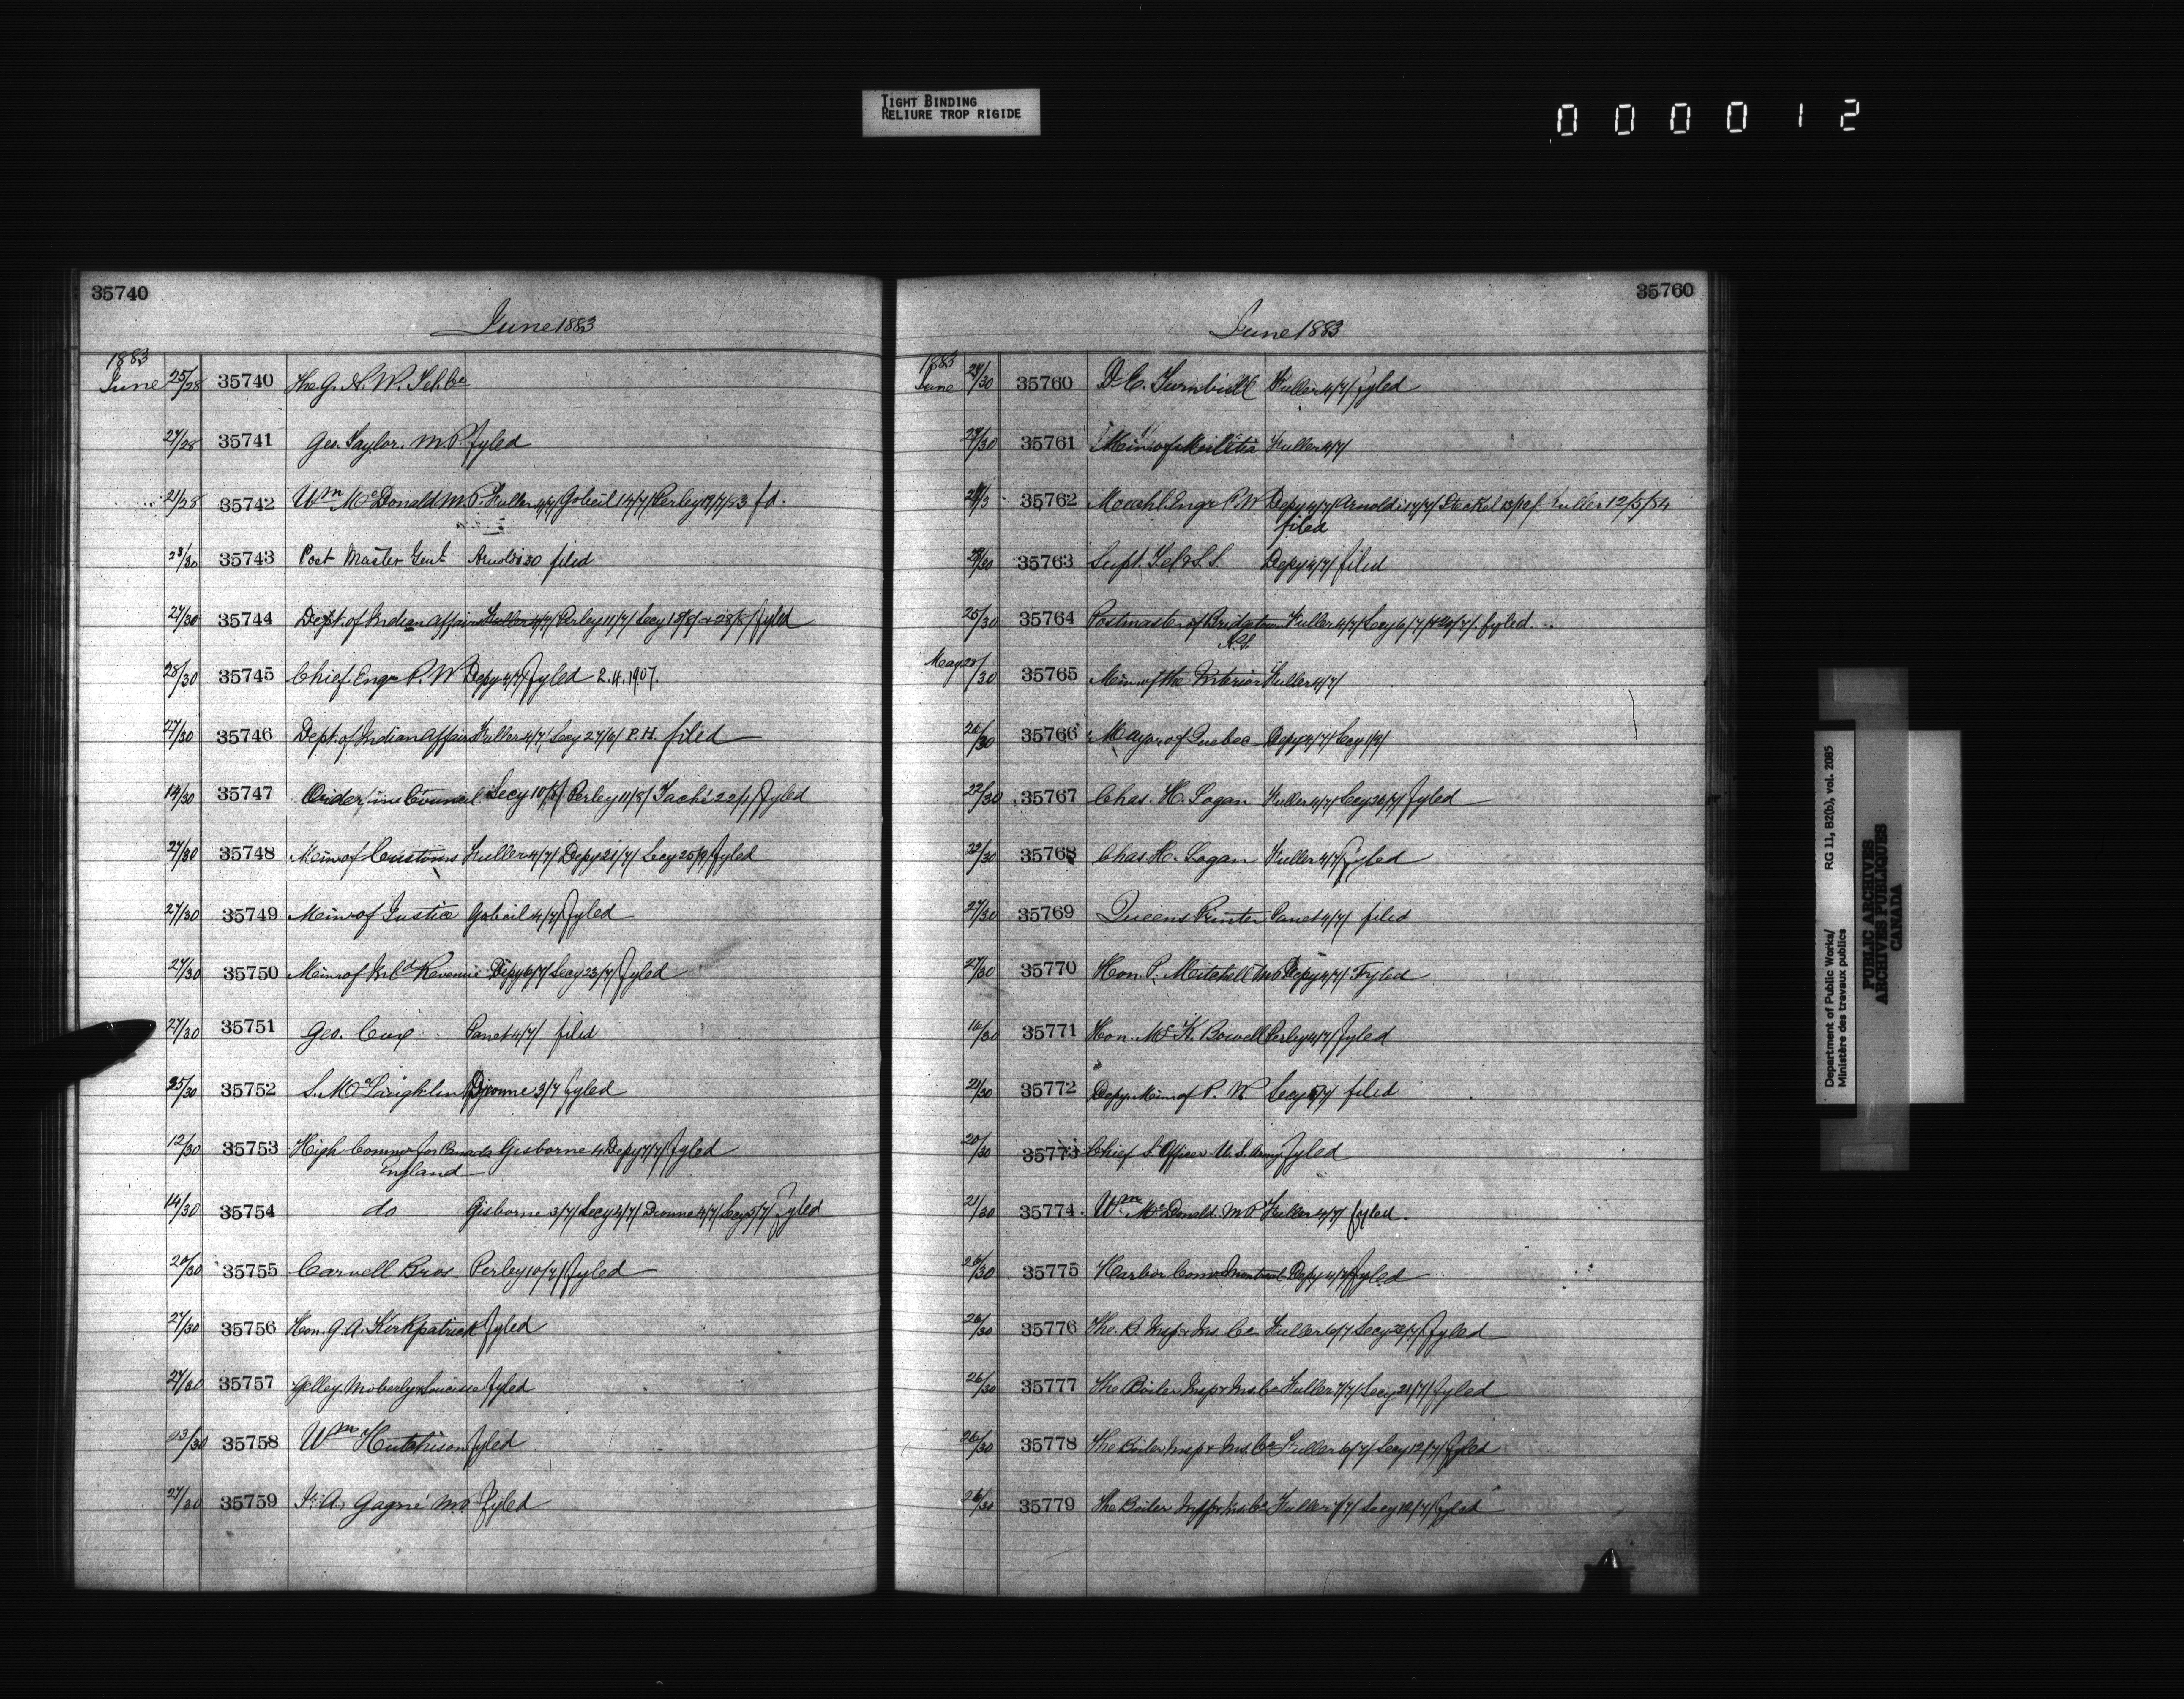 TIGHT BINDING
RELIURE TROP RIGIDE
000012
35740
June 1883
1883
June 25/28 35740 The G. N. W. Tel. Co
27/28 35741 Geo. Taylor. M.P. fyled
21/28 35742 Wm McDonald M.P. Fuller 4/7/ Gobeil 14/7/ Perley 19/7/83 fd.
23/30 35743 Post Master Genl Arnoldi 30 filed
27/30 35744 Dept. of Indian Affairs Fuller 4/7/ Perley 11/7/ Secy fyled
28/30 35745 Chief Engr P. W Depy 4/7/ fyled 2.4.1907.
27/30 35746 Dept. of Indian Affairs Fuller 4/7/ Secy P.H. filed
14/30 35747 Order in Council Secy 10/8/ Perley 11/8/ Taché fyled
27/30 35748 Minr of Customs Fuller 4/7/ Depy 21/7/ Secy fyled
27/30 35749 Minr of Justice Gobeil 4/7/ fyled
27/30 35750 Minr of Inld Revenue Depy 6/7/ Secy 23/7/ fyled
27/30 35751 Geo. Cox Panet 4/7/ filed
25/30 35752 S. McLaughlin Dionne 3/7 fyled
12/30 35753 High Commr for Canada Gisborne 4 Depy 7/7/ fyled
England
14/30 35754 do Gisborne 3/7/ Secy 4/7/ Dionne 4/7/ Secy 5/7/ fyled
20/30 35755 Carvell Bros Perley 10/7/ fyled
27/30 35756 Hon. G. A. Kirkpatrick fyled
27/30 35757 Moberly fyled
23/30 35758 Wm Hutchison fyled
27/30 35759 A. Gagné M.P. fyled
35760
June 1883
1883
June 27/30 35760 D. C. Turnbull Fuller 4/7/ fyled
27/30 35761 Minr of Militia Fuller 4/7/
35762 Mechl. Engr P. W Depy 4/7/ Arnoldi 17/7/ Steckel Fuller 12/5/84
filed
28/30 35763 Supt. Tel & S.S. Depy 4/7/ filed
25/30 35764 Postmaster of Bridgetown Fuller 4/7/ Secy 6/7/ fyled.
N.S.
May 28/30 35765 Minr of the Interior Fuller 4/7/
26/30 35766 Mayor of Quebec Depy 4/7/ Secy
22/30 35767 Chas. H. Logan Fuller 4/7/ Secy 26/7/ fyled
22/30 35768 Chas. H. Logan Fuller 4/7/ fyled
27/30 35769 Queens Printer Panet 4/7/ filed
27/30 35770 Hon. P. Mitchell M.P. Depy 4/7/ Fyled
16/30 35771 Hon. McK. Bowell Perley 4/7/ fyled
21/30 35772 Depy Minr of P. W. Secy filed
20/30 35773 Chief S. Officer U.S. Army fyled
21/30 35774 Wm McDonald. M P Fuller 4/7/ fyled.
26/30 35775 Harbor Comrs Montreal Depy 4/7/ fyled
26/30 35776 The. B. Insp. & Ins. Co Fuller 6/7 Secy fyled
26/30 35777 The Boiler Insp & Ins. Co Fuller 7/7/ Secy 21/7/ fyled
26/30 35778 The Boiler Insp & Ins. Co Fuller 6/7/ Secy 12/7/ fyled
26/30 35779 The Boiler Insp & Ins. Co Fuller 7/7/ Secy 12/7/ fyled
Department of Public Works/
Ministère des travaux publics
RG 11, B2(b), vol. 2085
PUBLIC ARCHIVES
ARCHIVES PUBLIQUES
CANADA